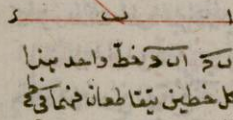 ا ب د
ں د ا ں د ح خط واحد هذا
كل خطين يتقاطعان فهما في سطح